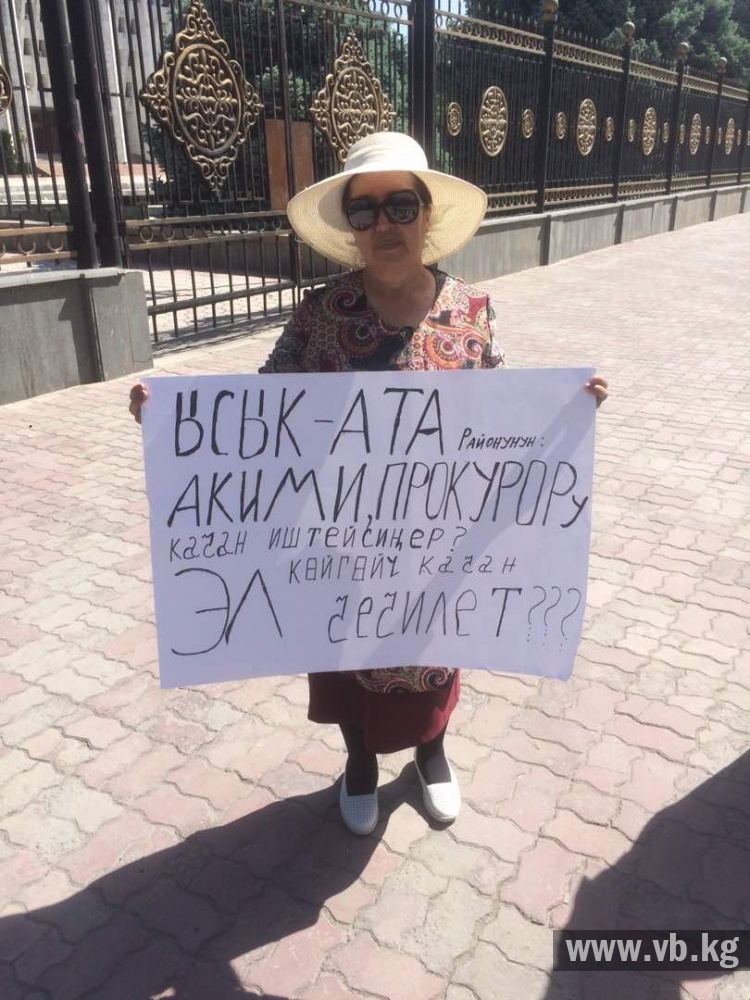 ЫСЫК-АТА Районунун:
АКИМИ, ПРОКУРОРу
качан иштейсиңер?
ЭЛ көйгөйү качан
чечилет???
www.vb.kg